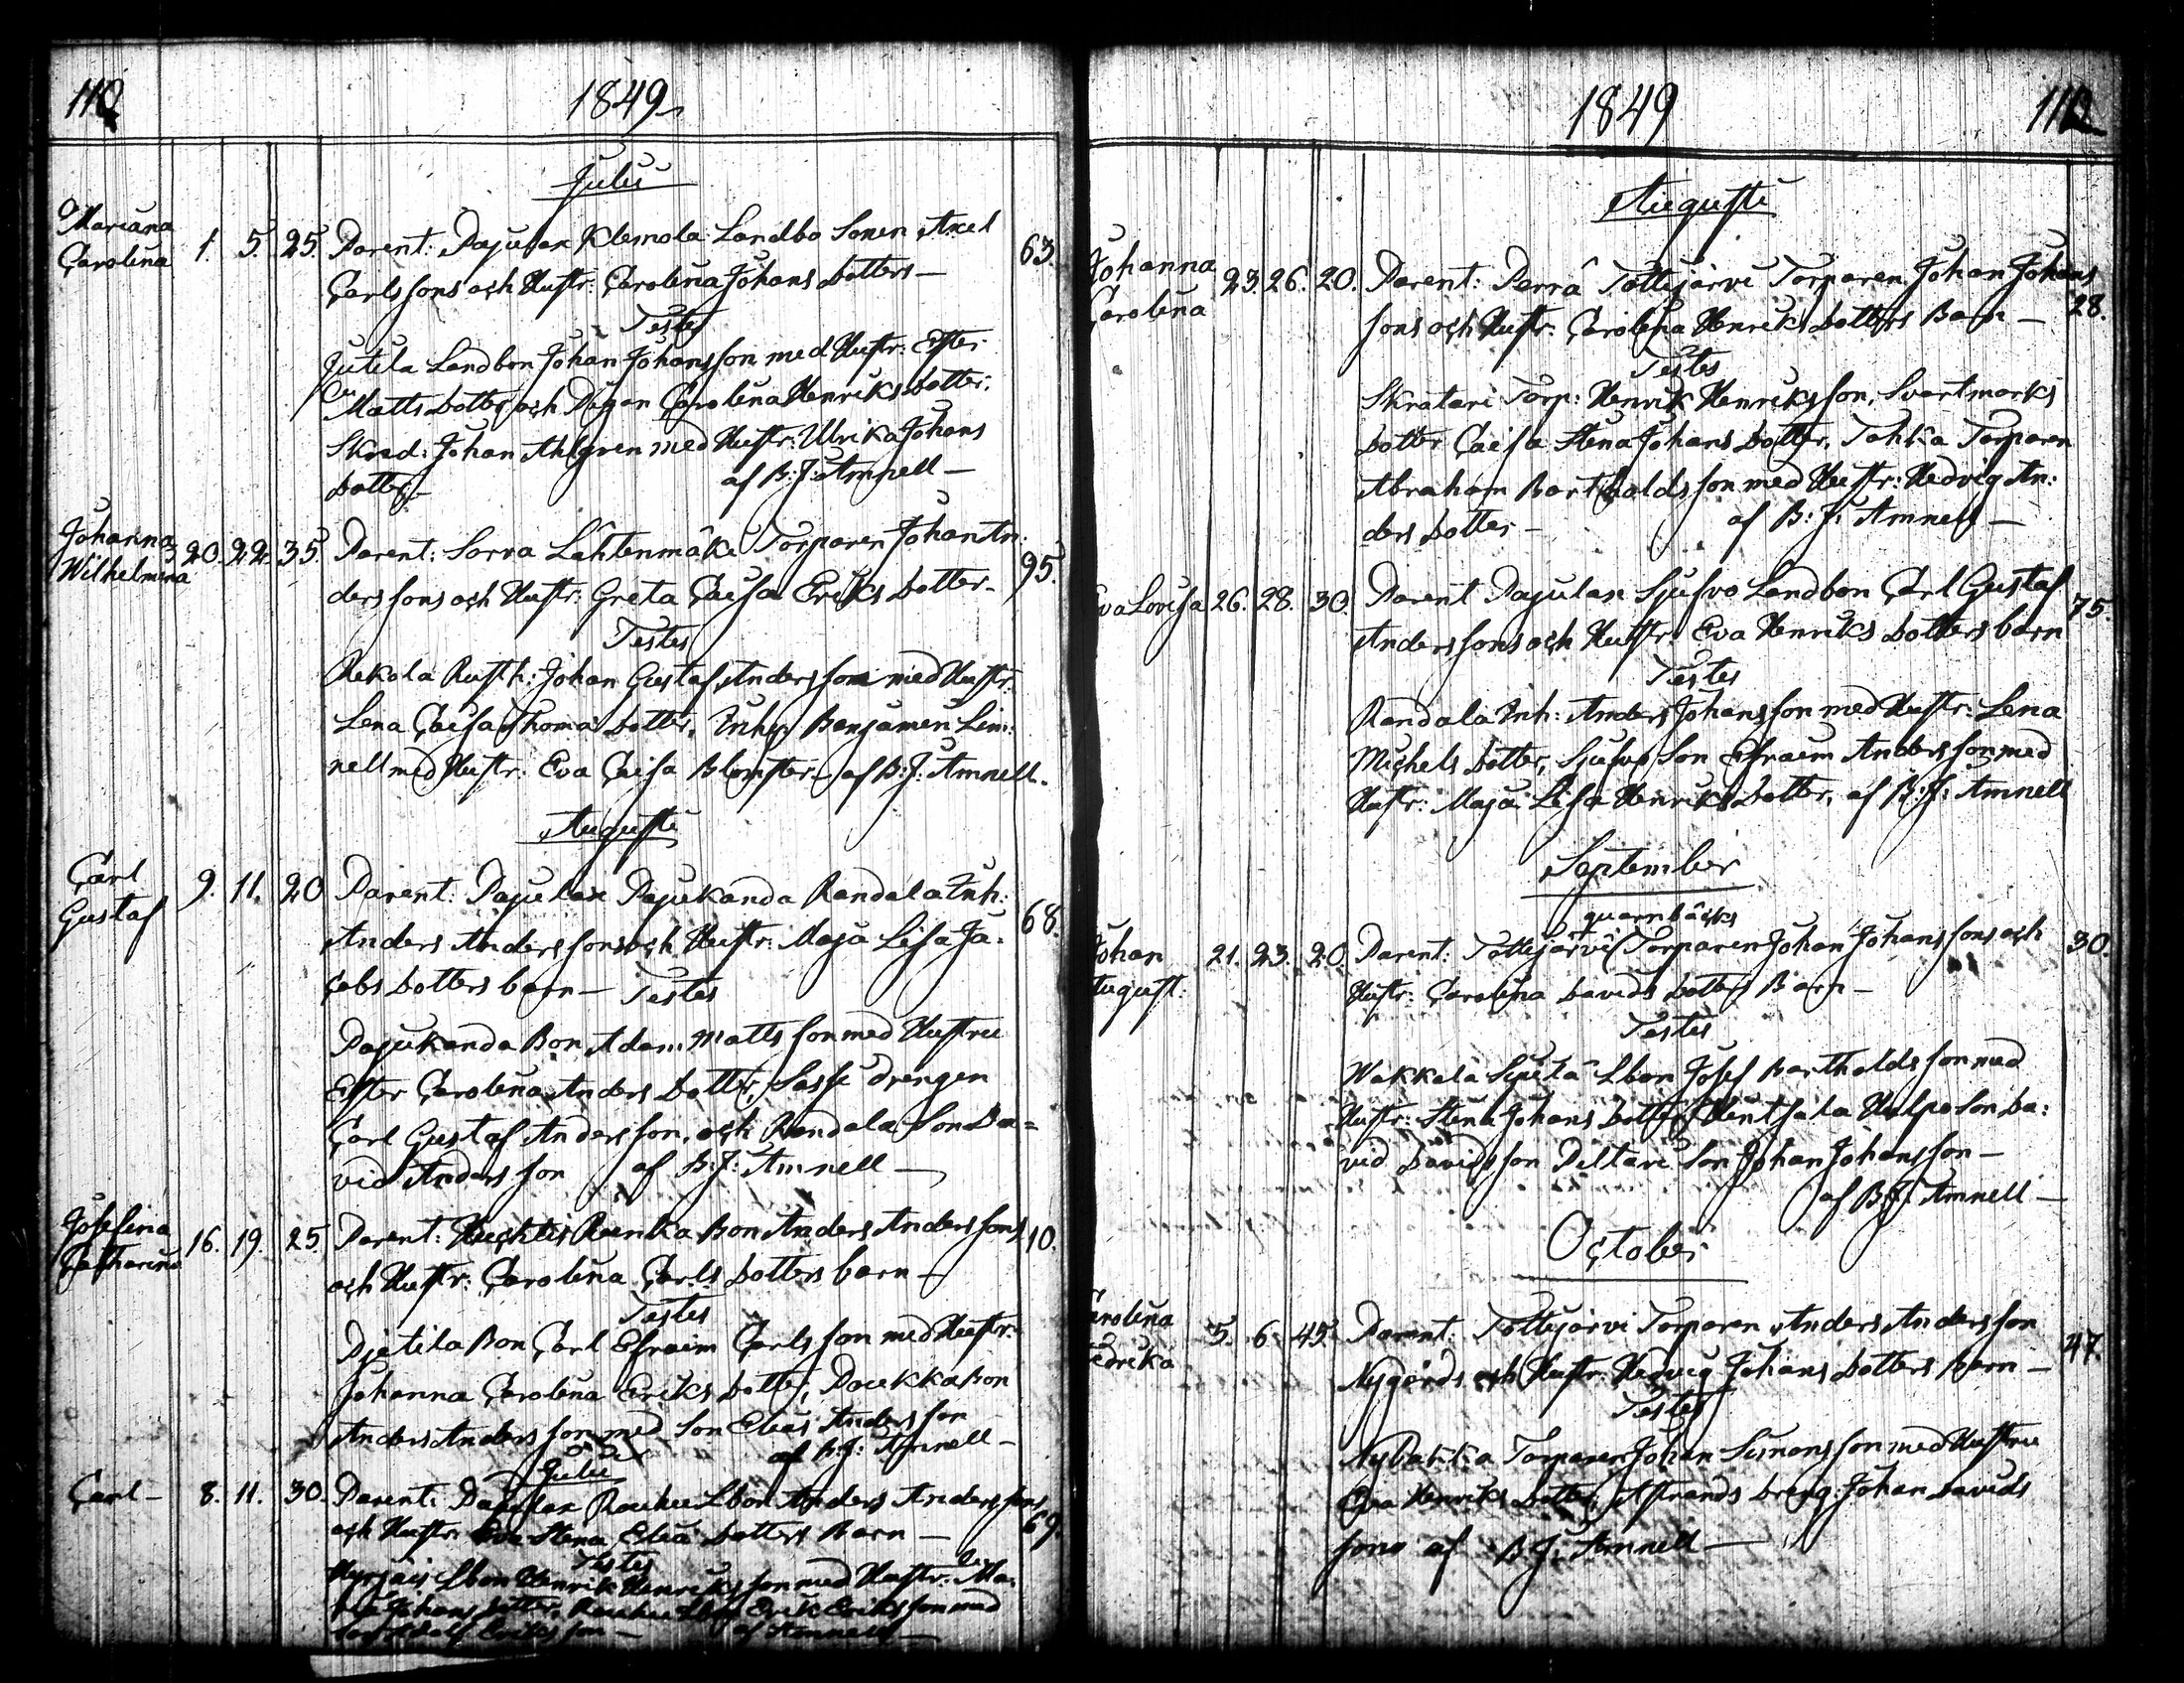 1849
Julii
Mariana
Carolina 1. 5. 25. Parent: Pajulax Klemola Landbo Sonen Axel 63.
Carlssons och Hustr: Carolina Johans dotters —
Testes
Jutila Landbon Johan Johansson med Hustr: Ester
Matts dotter och Pigan Carolina Henriks dotter,
Skräd: Johan Ahlgren med Hustr: Ulrika Johans
dotter — af B: J: Amnell —
Johanna
Wilhelmina 20. 22. 35. Parent: Sorva Lähtenmäki Torparen Johan An: 95.
ders sons och Hustr: Greta Caisa Eriks dotter —
Testes
Rekola Rusth: Johan Gustaf Andersson med Hustr:
Lena Caisa Thomas dotter, Inhy: Benjamin Lin:
nell med Hustr: Eva Caisa Blomster — af B: J: Amnell.
Augusti
Carl
Gustaf 9. 11. 20 Parent: Pajulax Pajukanda Randala Inh: 68.
Anders Anderssons och Hustr: Maja Lisa Ja:
cobs dotters barn — Testes
Pajukanda Bon Adam Matts son med Hustru
Ester Carolina Anders dotter, Sassi drengen
Carl Gustaf Andersson, och Randala Son Da=
vid Andersson af B: J: Amnell —
Josefina
Catharina 16. 19. 25 Parent: Huchtis Runka Bon Anders Anderssons 10.
och Hustr: Carolina Carls dotters barn —
Testes
Pjetila Bon Carl Efraim Carlsson med Hustr:
Johanna Carolina Eriks dotter, Paukka Bon
Anders Andersson med Son Elias Andersson
af B: J: Amnell —
Julii
Carl — 8. 11. 30. Parent: Pajulax Rauhu Lbon Anders Anderssons 69.
och Hustr: Eva Stena Elia dotters Barn —
Testes
Lbon Henrik Henriksson med Hustr: Ma:
Johans dotter, Rauhu Lbon Erik Eriksson med
Eriksson — af Amnell —
1849
Augusti
Johanna
Carolina 23. 26. 20. Parent: Perrä Tottijärvi Torparen Johan Johans 28.
sons och Hustr: Carolina Henriks dotters Barn —
Testes
Skratari Torp: Henrik Henriksson, Svartmarks
dotter Caisa Stena Johans dotter, Tohka Torparen
Abraham Bartholdsson med Hustr: Hedvig An:
ders dotter — af B: J: Amnell —
va Lovisa 26. 28. 30. Parent Pajulax Sjusvo Landbon Carl Gustaf 75.
Anderssons och Hustr: Eva Henriks dotters barn
Testes
Randala Inh: Anders Johansson med Hustr: Lena
Michels dotter, Sjusvo Son Efraim Andersson med
Hustr: Maja Lisa Henriks dotter, af B: J: Amnell
September
quarnbäcks
Johan
August: 21. 23. 20. Parent: Tottijärvi Torparen Johan Johanssons och 30.
Hustr: Carolina Davids dotters Barn —
Testes
Wakkala Sipilä Lbon Josef Bartholdsson med
Hustr: Stena Johans dotter, Hulpo Son Da:
vid Davidsson Peltari Son Johan Johansson —
af B: J: Amnell —
October
arolina
edrika 5. 6. 45. Parent: Tottijärvi Torparen Anders Andersson 47.
Nygårds och Hustr: Hedvig Johans dotters Barn —
Testes
Nybakka Torparen Johan Simonsson med Hustru
Eva Henriks dotter, Astrands dreng: Johan Davids
sons af B: J: Amnell —